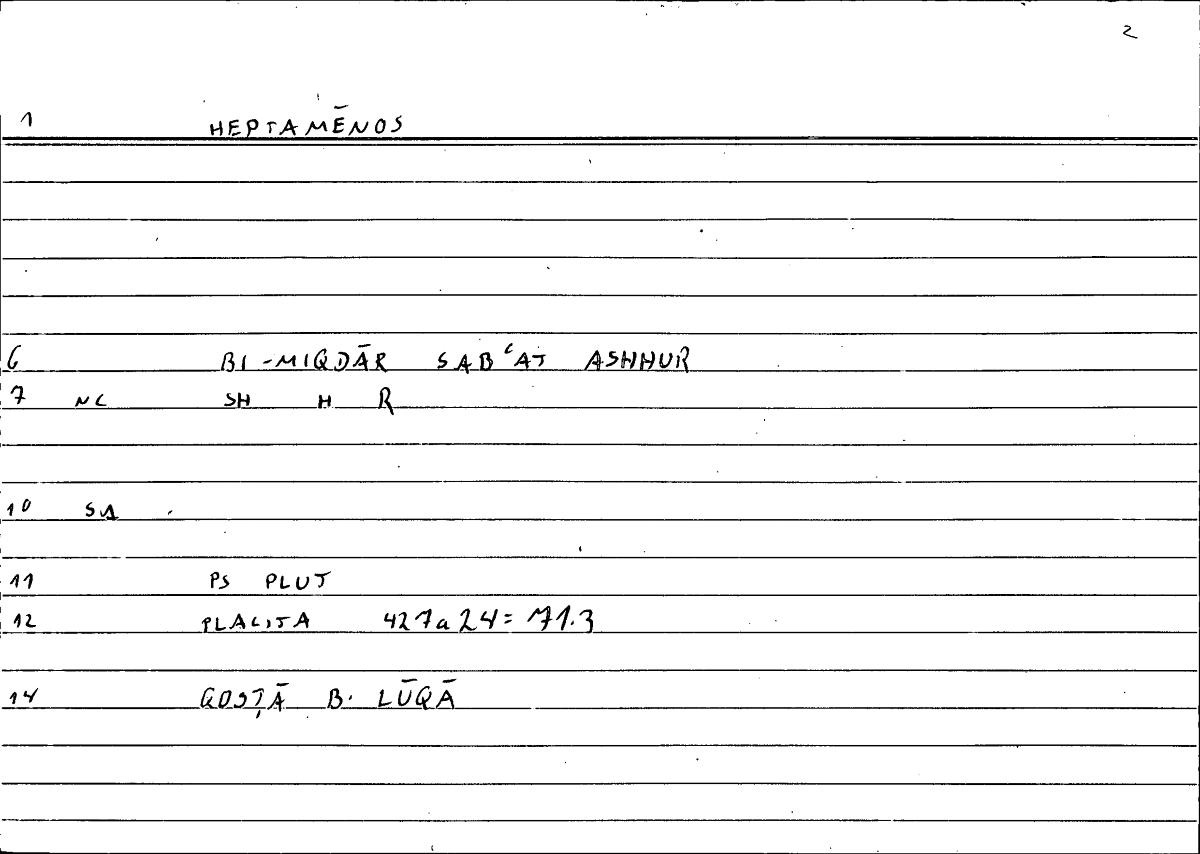 2
1 HEPTAMĒNOS
6 BI-MIQDĀR SABʿAT ASHHUR
7 NC SH H R
10 SA
11 PS PLUT
12 PLACITA 427a24=71.3
14 QOSṬĀ B. LŪQĀ